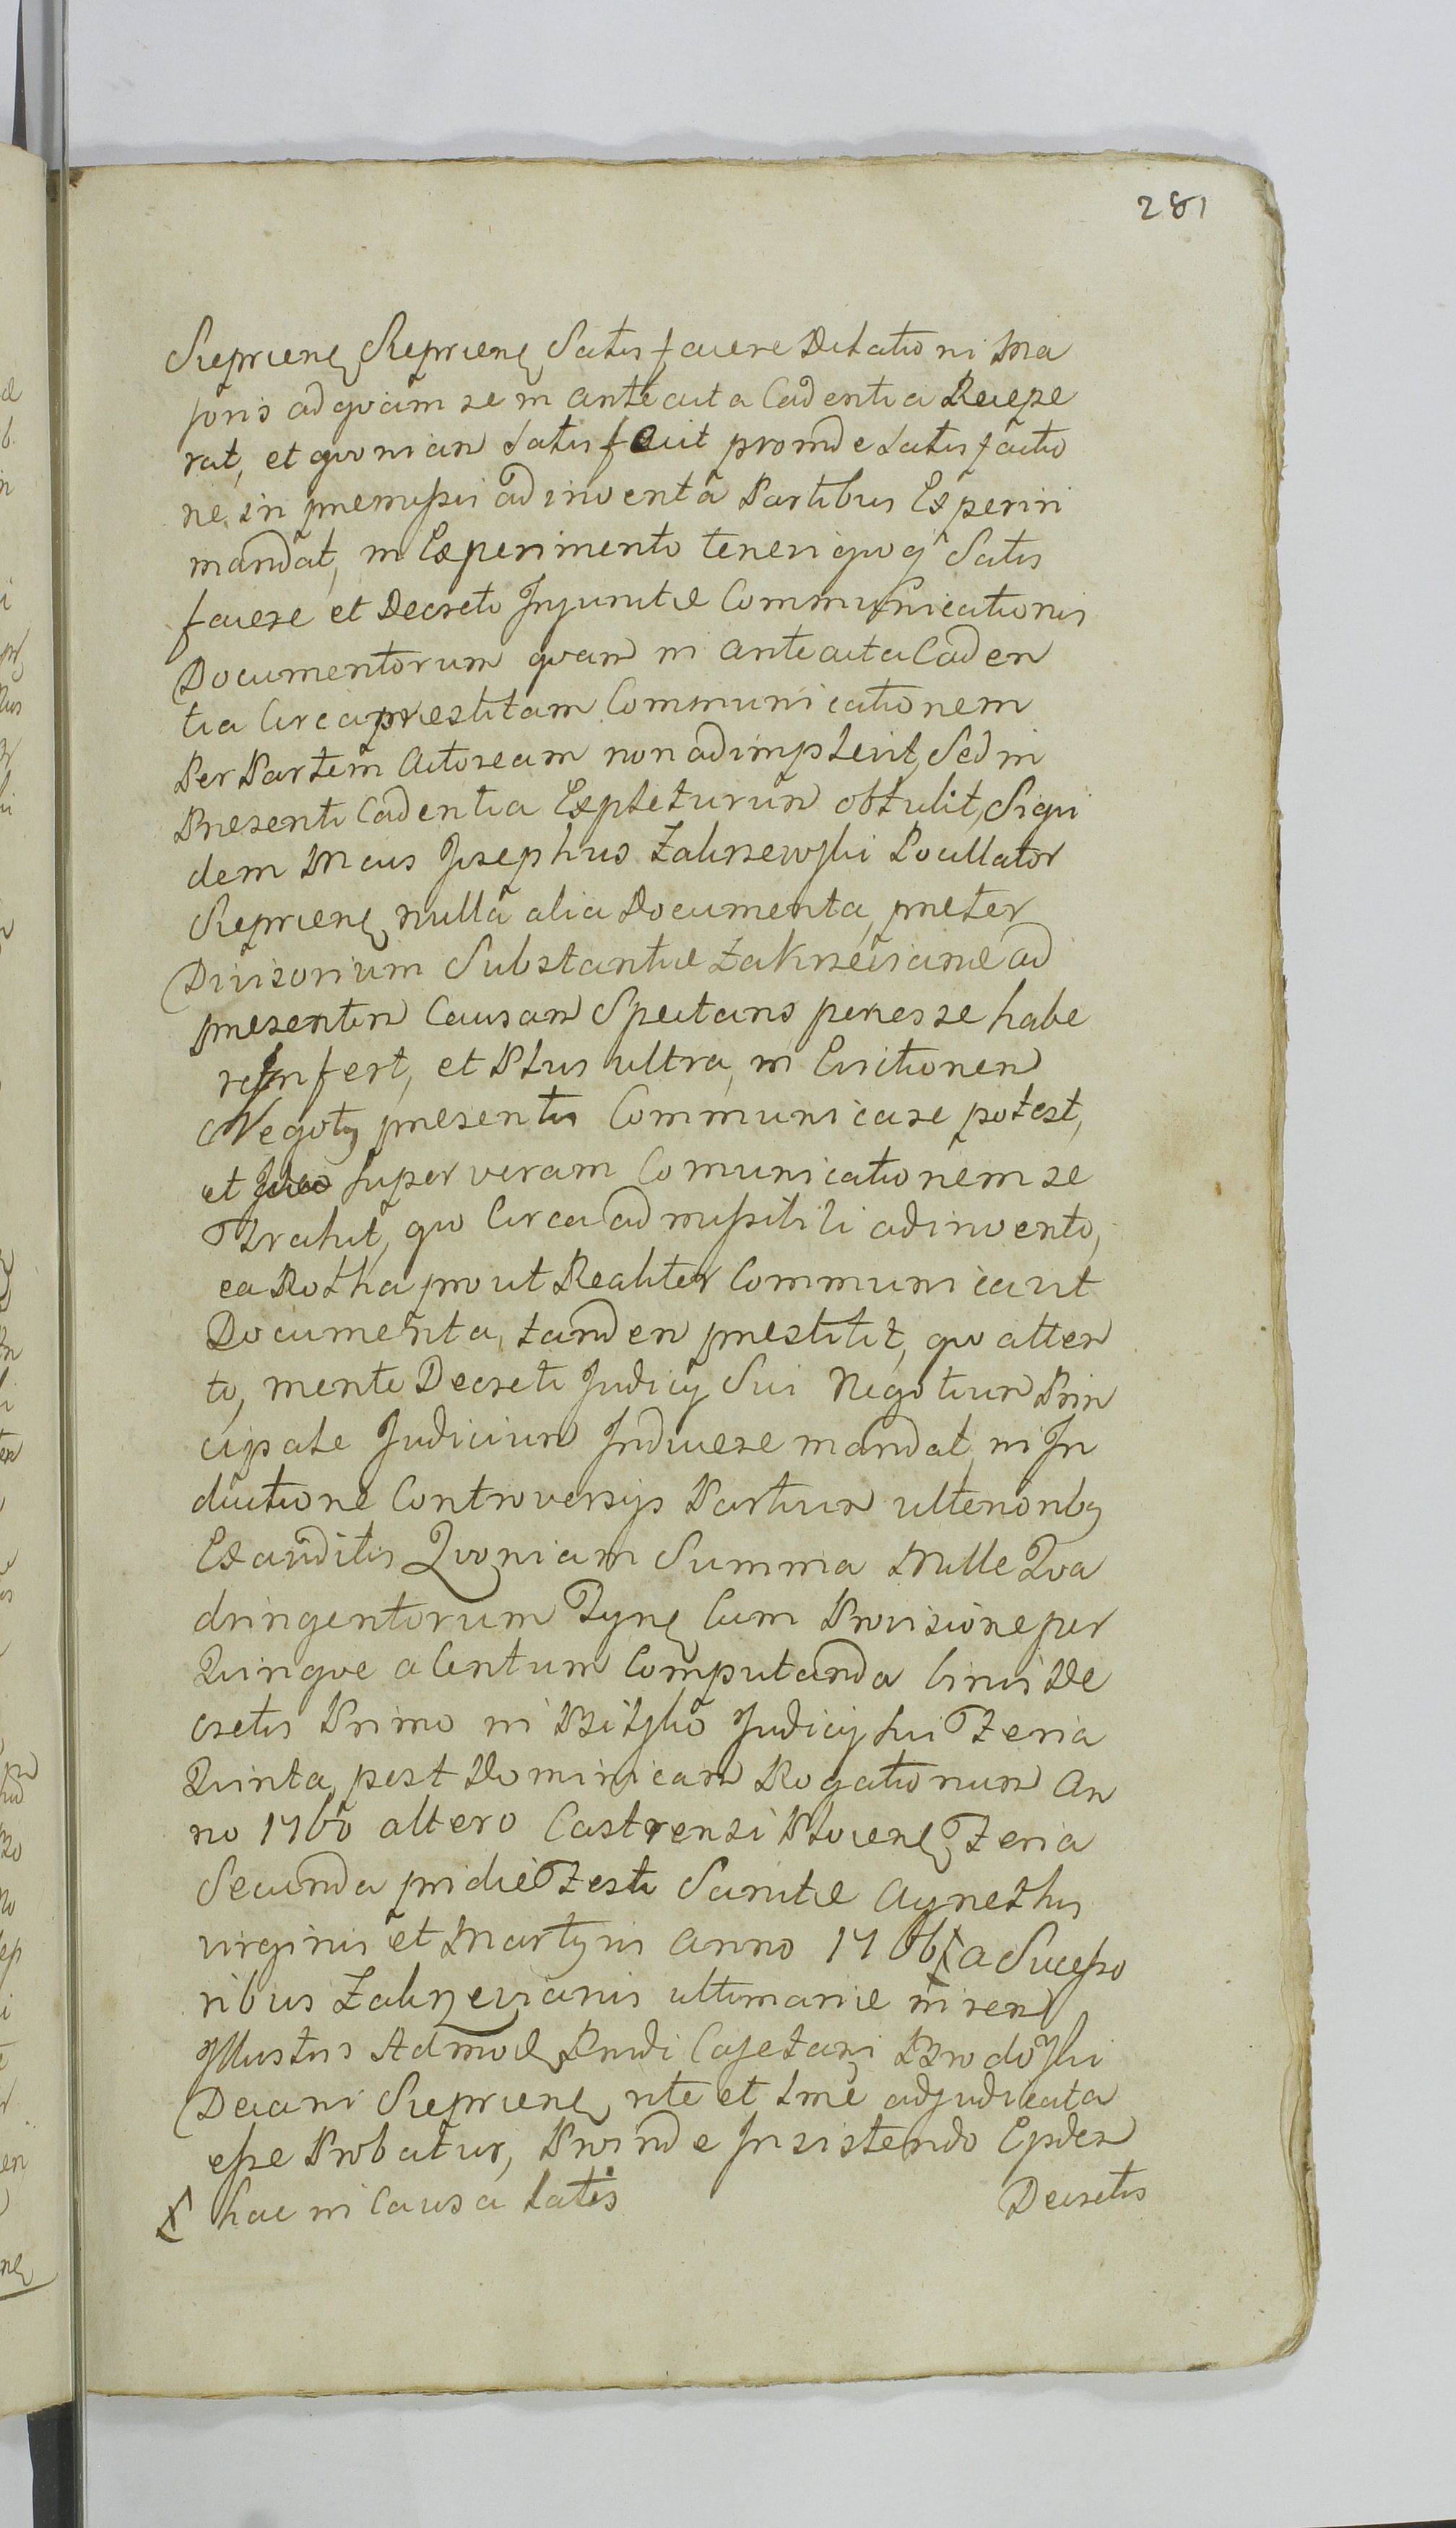 281
Sieprcen Sieprcen Satisfacere Dilationi Ma
joris ad quam se in anteacta Cadentia Recepe
rat, et quoniam Satisfecit proinde Satisfactio
ne in premissis adinventa Partibus Experiri
mandat, in Experimento teneri quoq Satis
facere et Decreto Injunctæ Communicationis
Documentorum quam in anteacta Caden
tia Circa prestitam Communicationem
Per Partem Actoream non adimplevit, Sed in
Presenti Cadentia Expleturum obtulit, Siqui
dem Mcus Josephus Zakrzewski Pocillator
Sieprcen nulla alia Documenta, preter
Divisorium Substantiæ Zakrzevianæ ad
presentem Causam Spectans penes se habe
re Infert, et Plus ultra, in Evictionem
Negoty presentis Communicare potest,
et super veram Comunicationem se
Trahit, quo Circa admissibili adinvento,
ea Rotha prout Realiter Communicavit
Documenta, tandem prestitit, quo atten
to, mente Decreti Judicy Sui Negotium Prin
cipale Judicium Inducere mandat, in In
ductione Controversijs Partium ulterioribq
Exauditis Quoniam Summa Mille Qua
dringentorum Tyn Cum Provisione per
Quinque a Centum Computanda binis De
cretis Primo in Judicij sui Feria
Quinta post Dominicam Rogationum An
no 1760 altero Castrensi Plocen Feria
Secunda pridie Festi Sanctæ Agnethis
virginis et Martyris Anno 1766 ꝉ a Successo
ribus Zakrzevianis ultimarie in rem
Illustris Admod Rndi Cajetani Brodoski
Decani Sieprcen rite et lme adjudicata
esse Probatur, Proinde Insistendo Eisdem
ꝉ hac in Causa Latis
Decretis